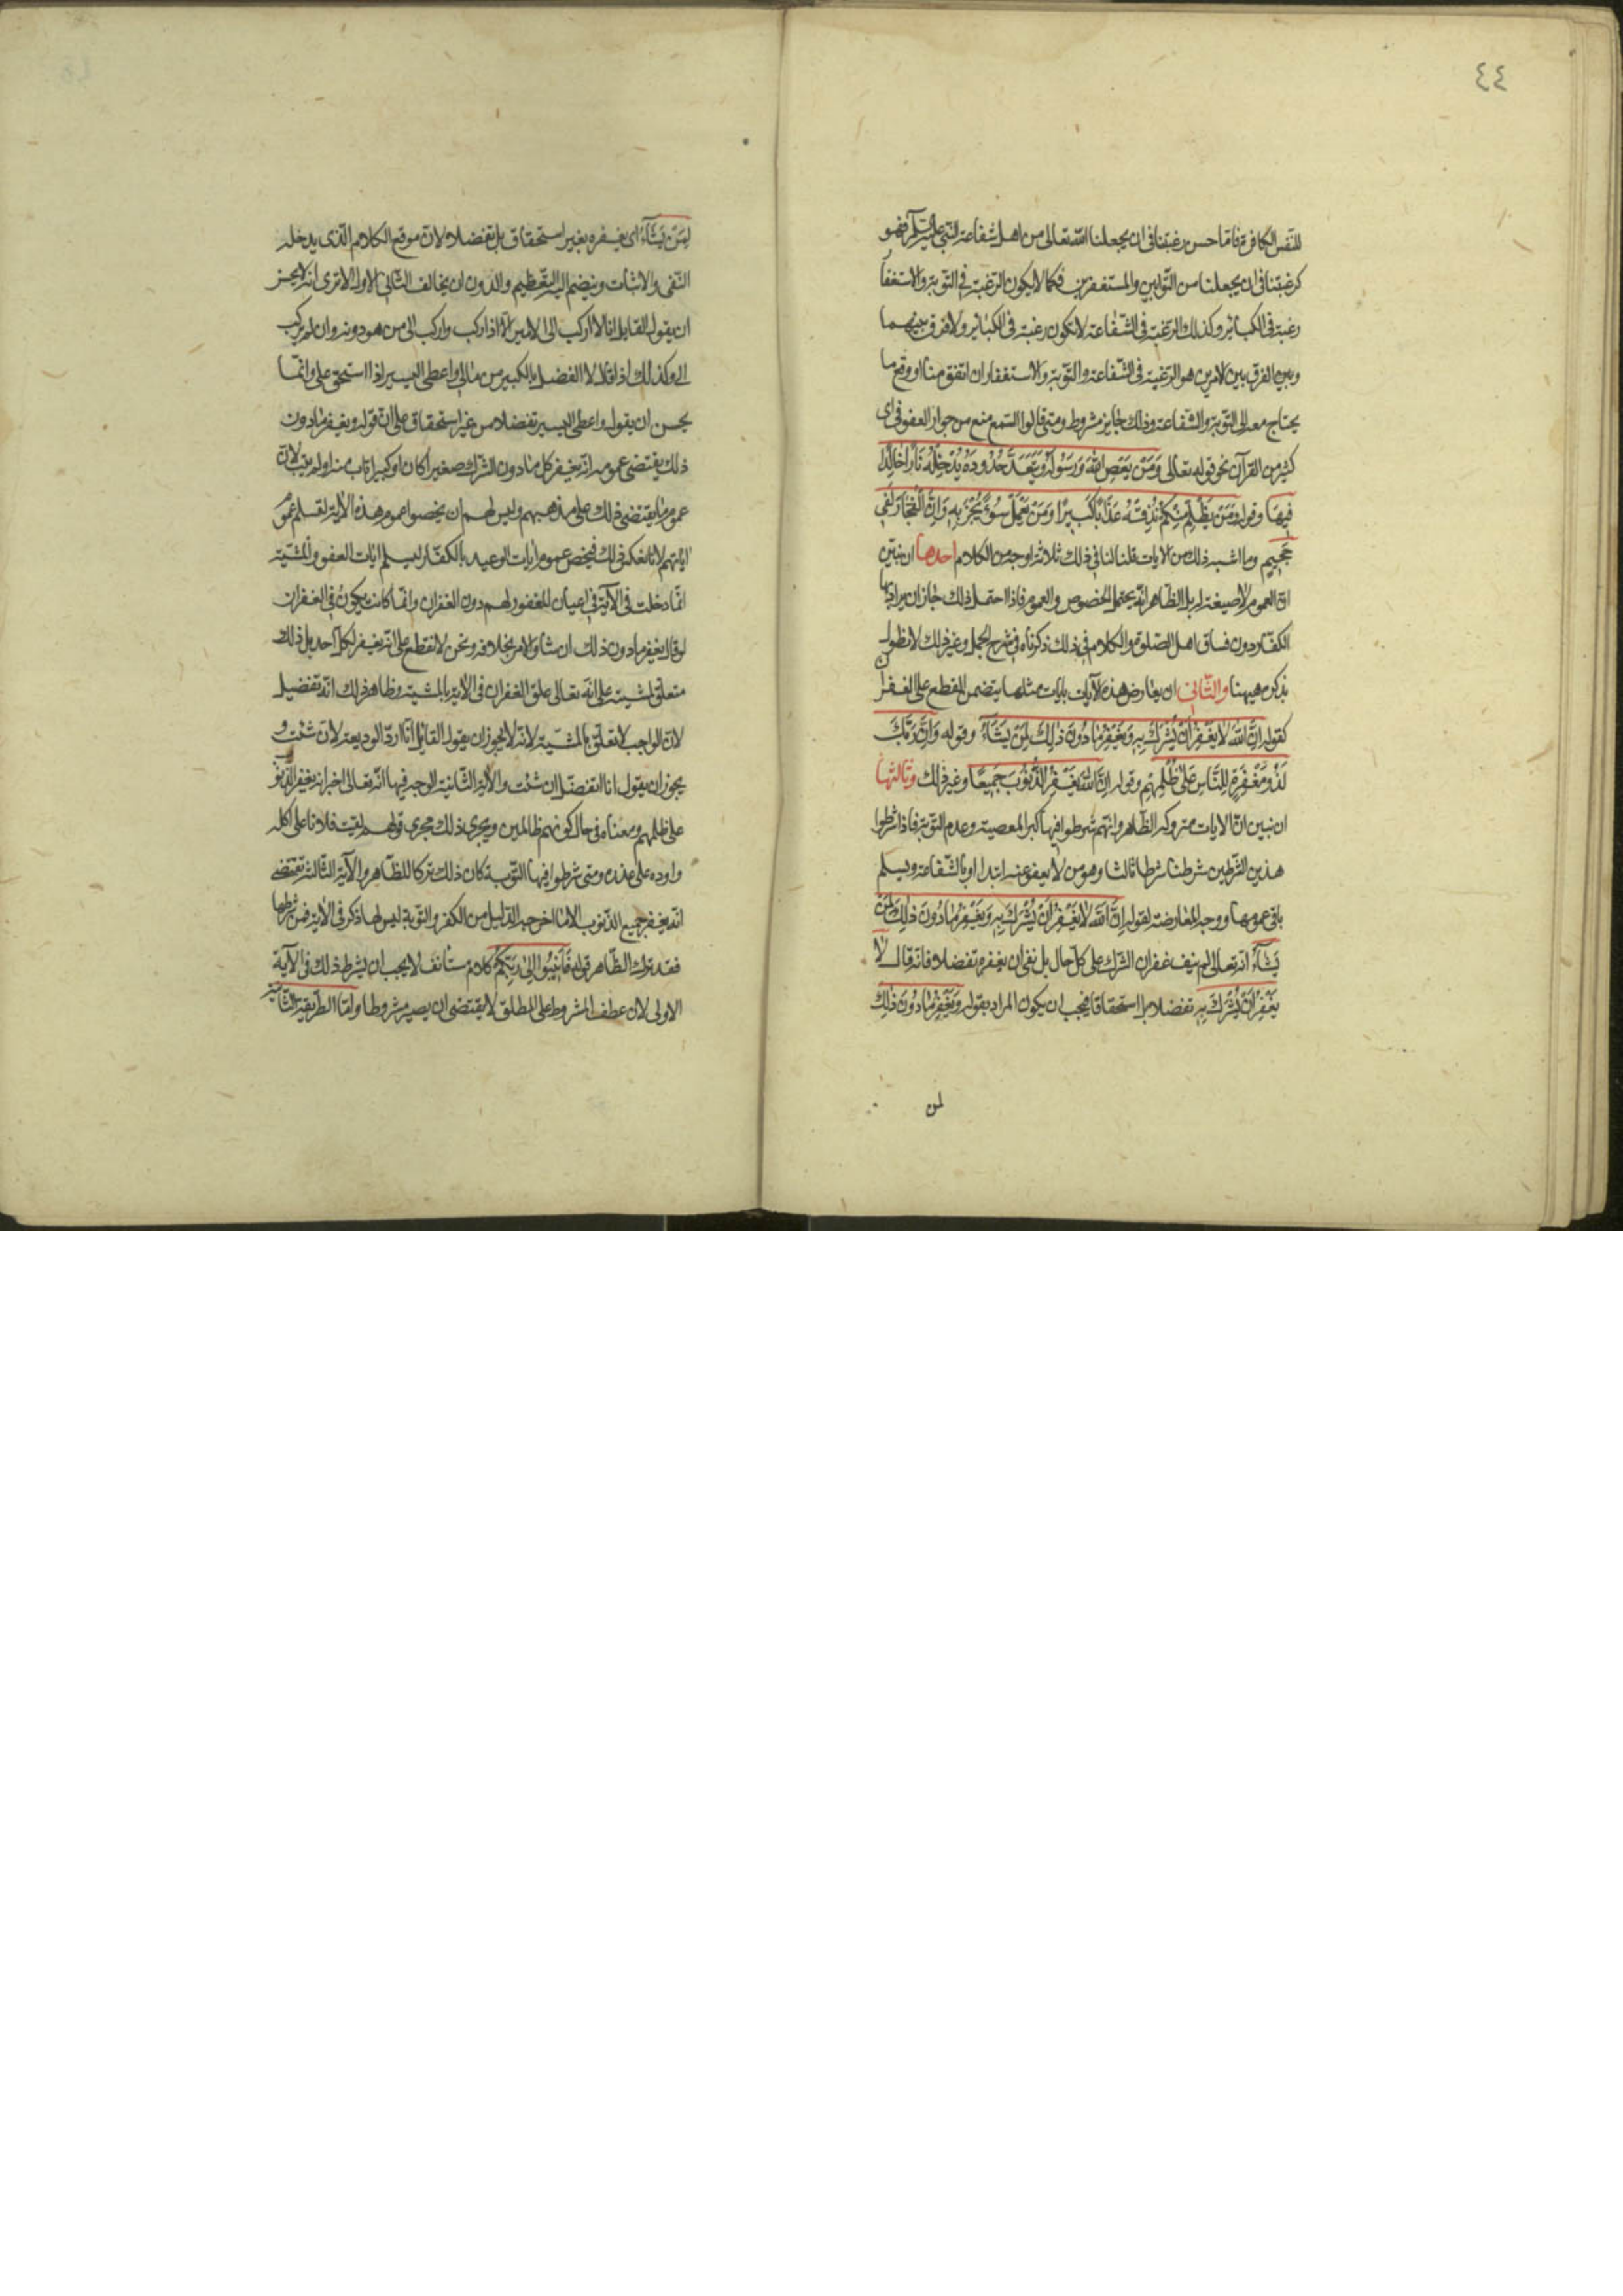 ٤٤
للنفس الكافرة فاما حسن رغبتنا فى ان يجعلنا الله تعالى من اهل شفاعة النبى عليه السلام فهو
كرغبتنا فى ان يجعلنا من التوابين والمستغفرين فكما لا يكون الرغبة فى التوبة والاستغفار
رغبة فى الكبائر وكذلك الرغبة فى الشفاعة لا تكون رغبة فى الكبائر ولا فرق بينهما
وبين الفرق بين الامرين هو الرغبة فى الشفاعة والتوبة والاستغفار ان اتفق منا او وقع ما
يحتاج معه الى التوبة والشفاعة وذلك جايز مشروط ومتى قالوا السمع منع من جواز العفو فى اى
كثير من القرآن نحو قوله تعالى وَمَنْ يَعْصِ اللهَ وَرَسُولَهُ وَيَتَعَدَّ حُدُودَهُ يُدْخِلْهُ نَارًا خَالِدًا
فِيهَا وقوله وَمَنْ يَظْلِمْ مِنْكُمْ نُذِقْهُ عَذَابًا كَبِيرًا وَمَنْ يَعْمَلْ سُوءًا يُجْزَ بِهِ وَاِنَّ الْفُجَّارَ لَفِي
جَحِيمٍ وما اشبه ذلك من الايات قلنا لنا فى ذلك ثلاثة اوجه من الكلام احدها ان نبين
ان العموم لا صيغة له بل الظاهر انه يحتمل الخصوص والعموم فاذا احتمل ذلك جاز ان يراد بها
الكفار دون فساق اهل الصلوة والكلام فى ذلك ذكرناه فى شرح الجمل وغير ذلك لا نطول
بذكره هيهنا والثانى ان يعارض هذه الآيات بايات مثلها يتضمن القطع على الغفران
كقوله اِنَّ اللهَ لَا يَغْفِرُ اَنْ يُشْرَكَ بِهِ وَيَغْفِرُ مَا دُونَ ذٰلِكَ لِمَنْ يَشَآءُ وقوله وَاِنَّ رَبَّكَ
لَذُو مَغْفِرَةٍ لِلنَّاسِ عَلٰى ظُلْمِهِمْ وقوله اِنَّ اللهَ يَغْفِرُ الذُّنُوبَ جَمِيعًا وغير ذلك وثالثها
ان نبين ان الايات متروكة الظاهر وانهم شرطوا فيها كبر المعصية وعدم التوبة فاذا شرطوا
هذين الشرطين شرطنا شرطا ثالثا وهو من لا يعفو عنه ابتدا او بالشفاعة ويسلم
باقى عمومها ووجه المعارضة لقوله اِنَّ اللهَ لَا يَغْفِرُ اَنْ يُشْرَكَ بِهِ وَيَغْفِرُ مَا دُونَ ذٰلِكَ لِمَنْ
يَشَآءُ انه تعالى لم ينف غفران الشرك على كل حال بل نفى ان يغفره تفضلا فانه قال لَا
يَغْفِرُ اَنْ يُشْرَكَ بِهِ تفضلا بل استحقاقا فيجب ان يكون المراد بقوله وَيَغْفِرُ مَا دُونَ ذٰلِكَ
لمن
لِمَنْ يَشَآءُ اى يغفره بغير استحقاق بل تفضلا لان موقع الكلام الذى يدخله
النفى والاثبات وينضم اليه التعظيم والدون ان يخالف الثانى الاول الا ترى انه لا يحسن
ان يقول القايل انا لا اركب الى الامير الا اذا ركب واركب الى من هو دونه وان لم يركب
الى وكذلك اذا قال لا اتفضل بالكبير من مالى واعطى اليسير اذا استحق على وانما
يحسن ان يقول واعطى اليسير تفضلا من غير استحقاق على ان قوله ويغفر ما دون
ذلك يقتضى عمومه انه يغفر كل ما دون الشرك صغيرا كان او كبيرا تاب منه او لم يتب لان
عموم ما يقتضى ذلك على مذهبهم وليس لهم ان يخصوا عموم هذه الآية لتسلم عموم
اياتهم لانا نعكس ذلك فيخص عموم ايات الوعيد بالكفار ليسلم ايات العفو والمشية
انما دخلت فى الآية فى اعيان المغفور لهم دون الغفران وانما كانت يكون فى الغفران
لو قال يغفر ما دون ذلك ان شاء والامر بخلافه ونحن لا نقطع على انه يغفر لكل احد بل ذلك
متعلق بمشيته على انه تعالى علق الغفران فى الآية بالمشية وظاهر ذلك انه تفضيل
لان الواجب لا تعلق بالمشية لانه لا يجوز ان يقول القايل انا ارد الوديعة لان شئت و
يجوز ان يقول انا اتفضل ان شئت والآية الثانية الوجه فيها انه تعالى اخبر انه يغفر الذنوب
على ظلمهم ومعناه فى حال كونهم ظالمين ويجرى ذلك مجرى قولهم لقيت فلانا على اكله
واوده على غدره ومتى شرطوا فيها التوبة كان ذلك تركا للظاهر والآية الثالثة تقتضى
انه يغفر جميع الذنوب الا ما اخرجه الدليل من الكفر والتوبة ليس لها ذكر فى الاية فمن شرطها
فقد ترك الظاهر قوله فَاَنِيبُوا اِلٰى رَبِّكُمْ كلام مستأنف لا يجب ان يشرط ذلك فى الآية
الاولى لان عطف المشروط على المطلق لا يقتضى ان يصير مشروطا واما الطريقة الثانية